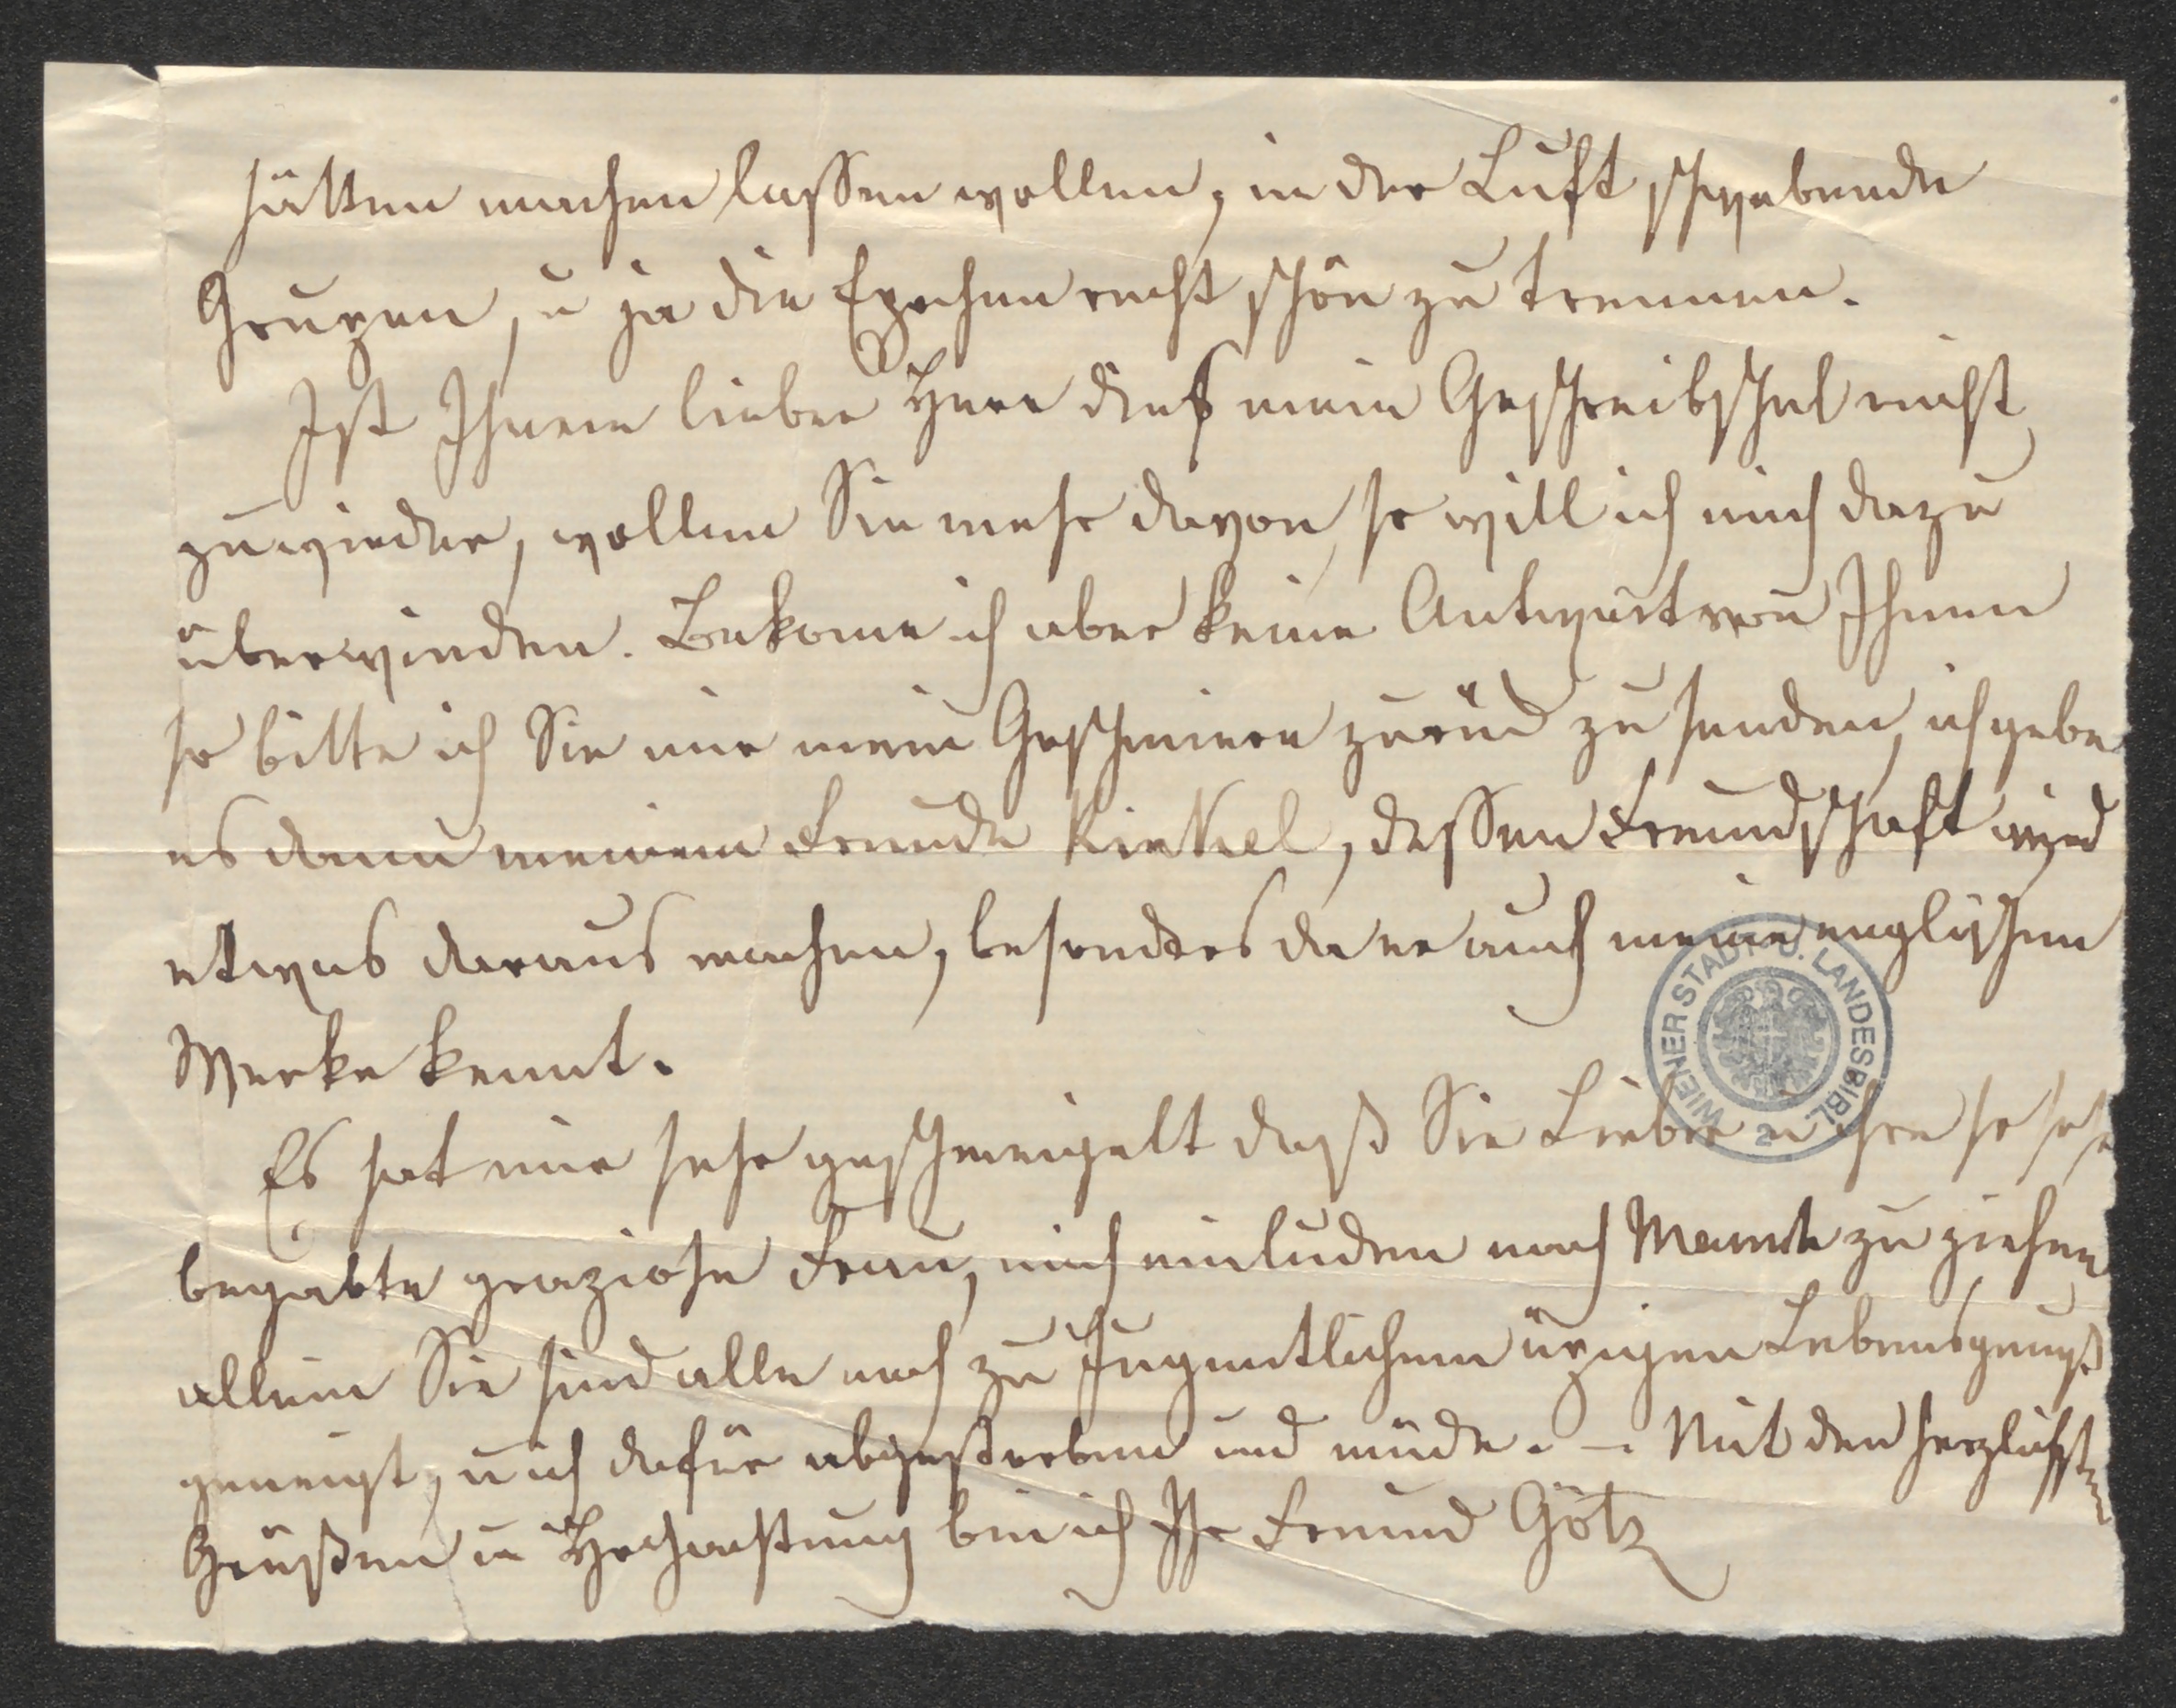 hätten machen lassen wollen, in der Luft schwebende
Grupen, u ja die Epochen recht schön zu trennen.
Ist Ihnen lieber Herr dies mein Geschreibsel nicht
zuwieder, wollen Sie mehr davon, so will ich mich dazu
überwinden. Bekome ich aber keine Antwort von Ihnen
so bitte ich Sie mir mein Geschmiere zurück zu senden, ich gebe
es dann meinem Freunde Kinkel, dessen Freundschaft wird
etwas daraus machen, besonders da er auch meine englischen
Werke kennt.
Es hat mir sehr geschmeigelt daß Sie Lieber u Ihre so sehr
begabte graziose Frau, mich einluden nach zu ziehen
allein Sie sind alle noch zu Jugentlichem üpigen Lebensgenuß
geneigt, u ich dafür abgestorben und müde. — Mit den herzlichsten
Grüßen u Hochachtung bin ich Ihr Freund Götz
WIENER STADT- U. LANDESBIBL.
2